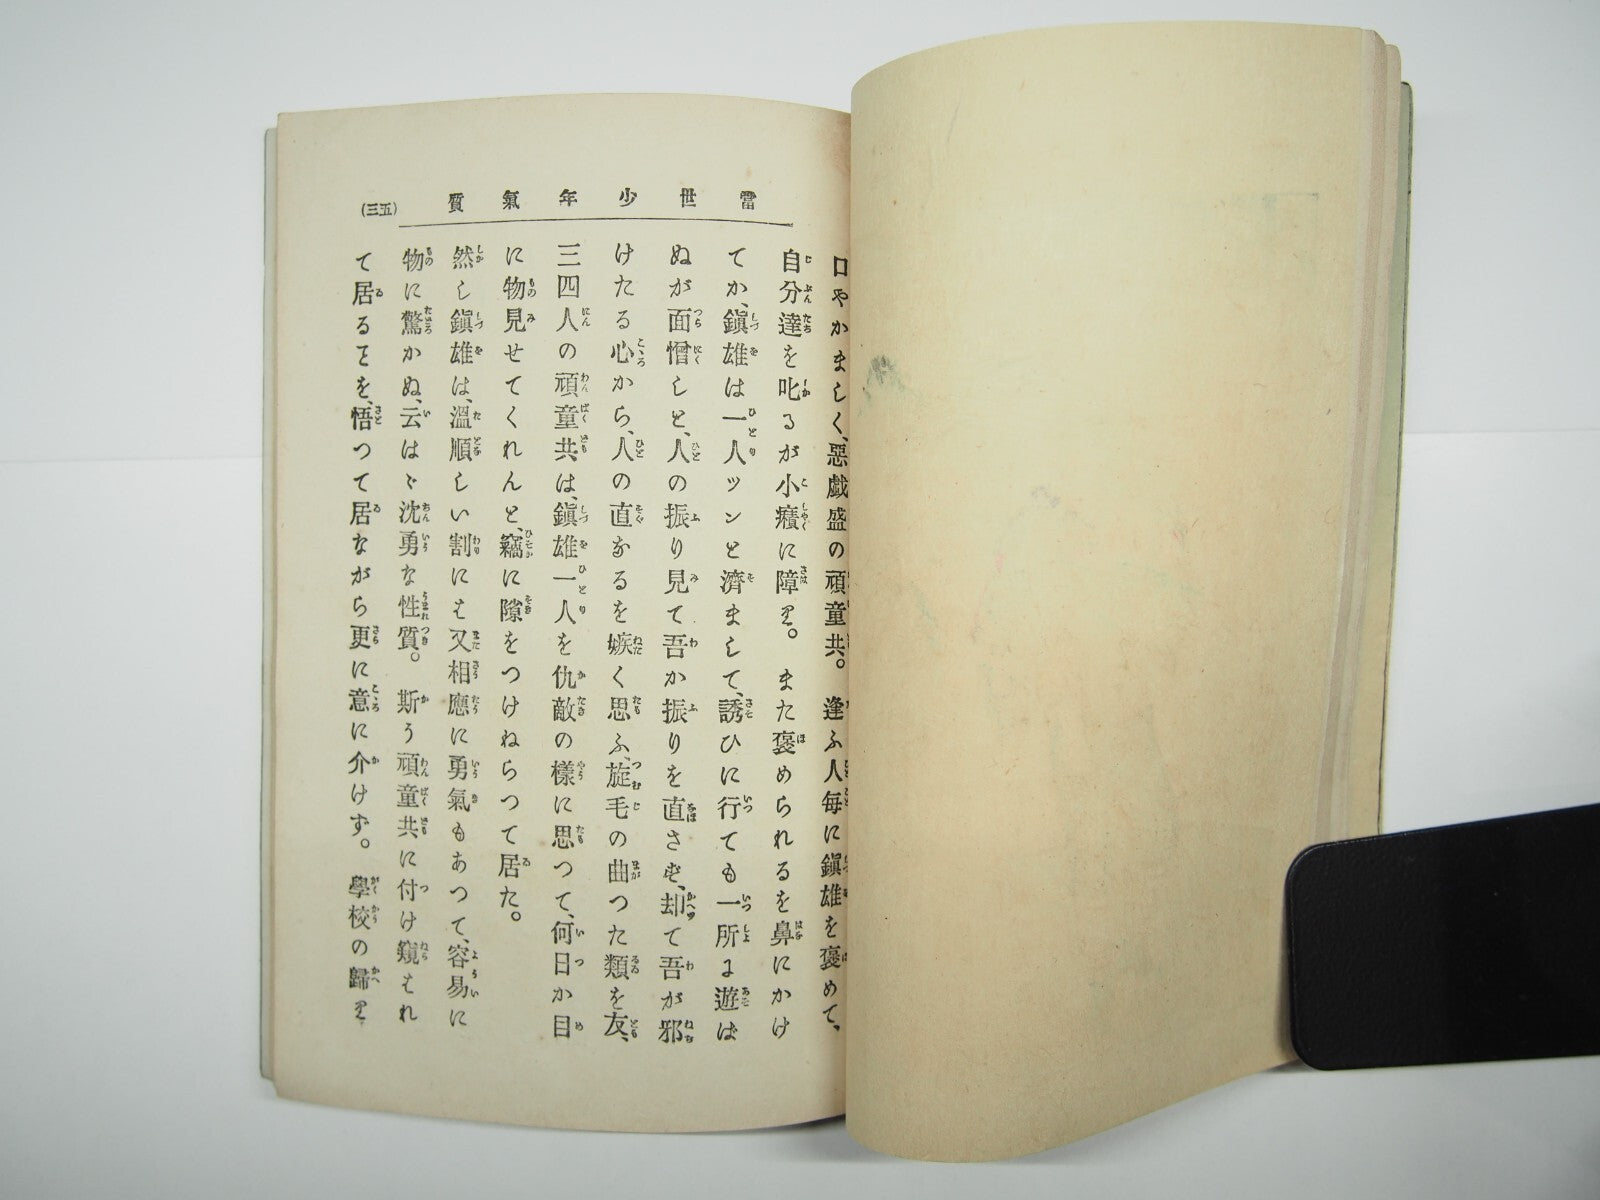 當世少年氣質
(三五)
口やかましく、惡戯盛の頑童共。逢ふ人毎に鎭雄を褒めて、
自分達を叱るが小癪に障り。また褒められるを鼻にかけ
てか、鎭雄は一人ツンと濟まして、誘ひに行ても一所に遊ば
ぬが面憎しと、人の振り見て吾か振りを直さず、却て吾が邪
けたる心から、人の直なるを嫉く思ふ、旋毛の曲つた類を友、
三四人の頑童共は、鎭雄一人を仇敵の樣に思つて、何日か目
に物見せてくれんと、竊に隙をつけねらつて居た。
然し鎭雄は、溫順しい割にも又相應に勇氣もあつて、容易に
物に驚かぬ、云はゞ沈勇な性質。斯う頑童共に付け窺はれ
て居るヿを、悟つて居ながら更に意に介けず。學校の歸り